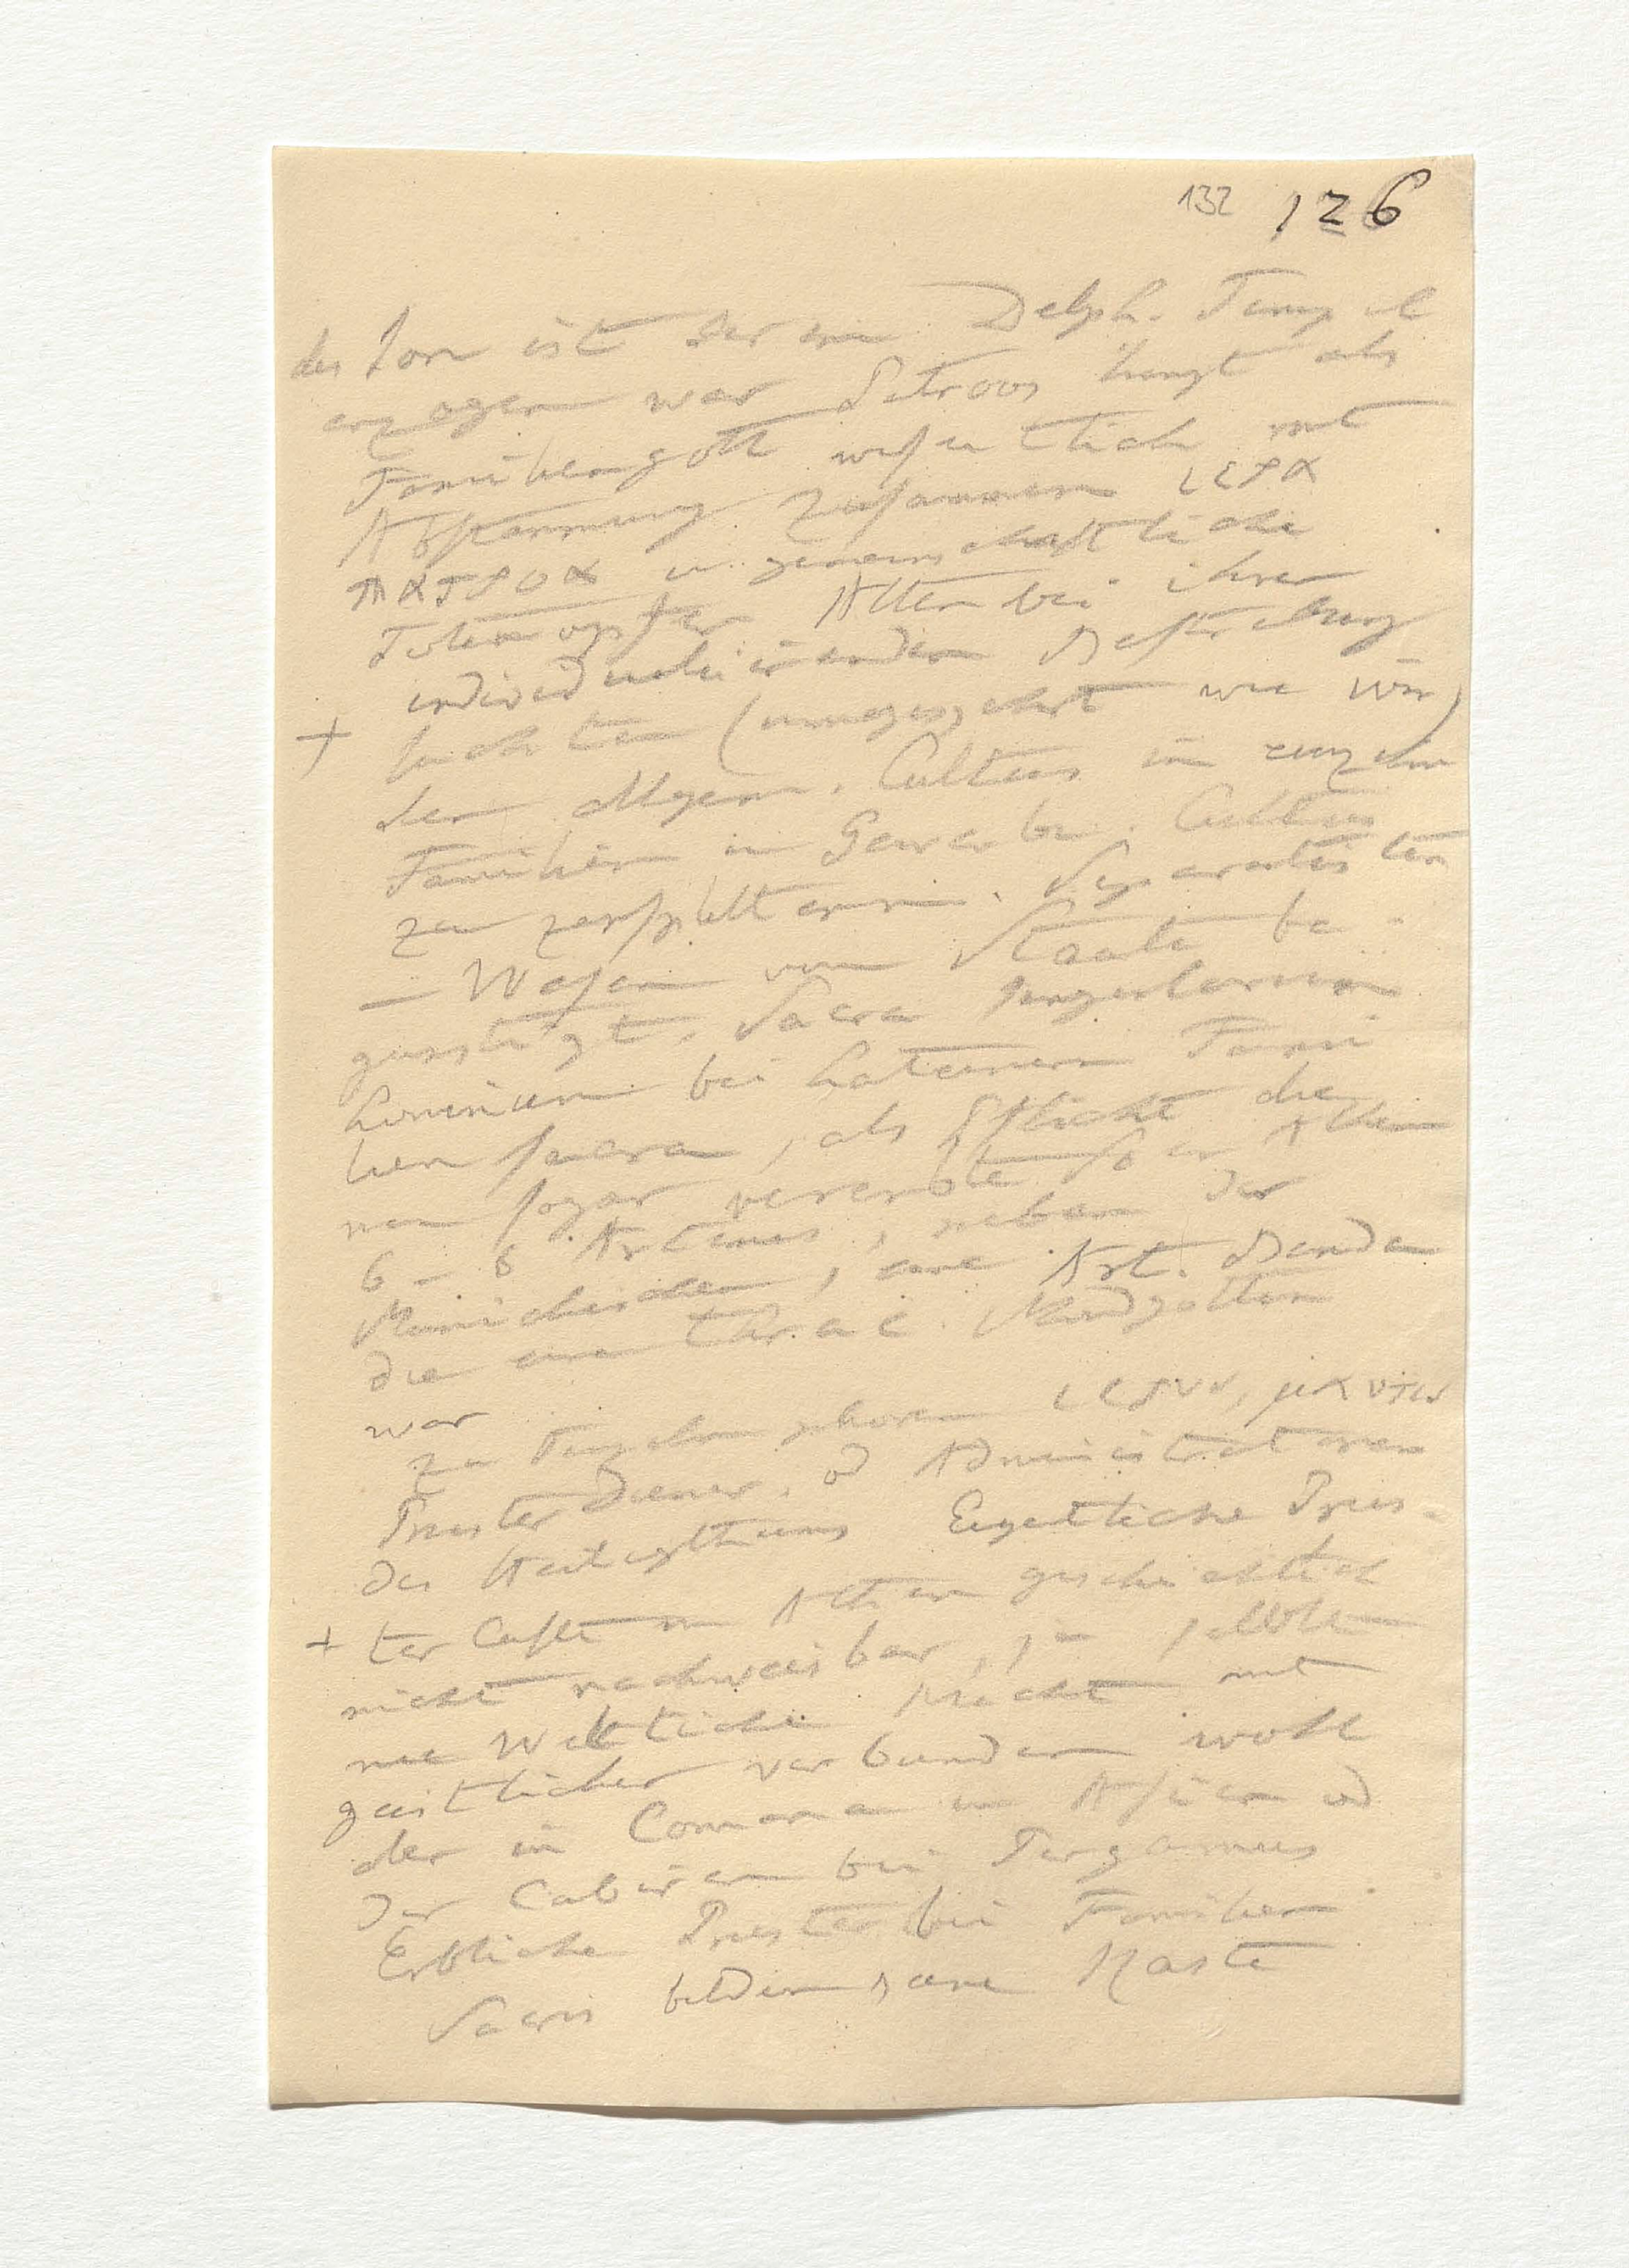 132 126
des Ion ist der im Delph. Tempel
erzogen war Patroos hengt als
Familiengott wesentlich mit
Abstammung zusammen ιερα
πατροα u. gemeinschaftliche
Totenopfer Alten bei ihrer
individualisirenden Bestrebung
+ suchten (umgegekehrt wie wir)
den allgem. Cultus in einzeln
Familien in Gewerbe. Cultus
zu zersplittern. Separatisten
– Wesen vom Staate be-
guenstigt. Sacra singulorum
hominum bei Lateinern Fami
lien sacra, als Pflicht die
man sogar vererbte So in Athen
6 – 8 Artemis, neben der
Munichischen, eine Art. Benda
die eine thrac. Mondgottin
war
zu Tempeln gehoren ιερεις, μαντεις
Priester Diener. od Administratoren
des Heiligthums Eigentliche Pries-
+ ter Caste in Athen geschichtlich
nicht nachweisbar, selten
nie Weltliche Macht mit
geistlicher verbunden wohl
aber in Comana in Asien od
der Cabiren bei Pergamus
Erbliche Priester bei Familien
Sacris bilden keine Kaste